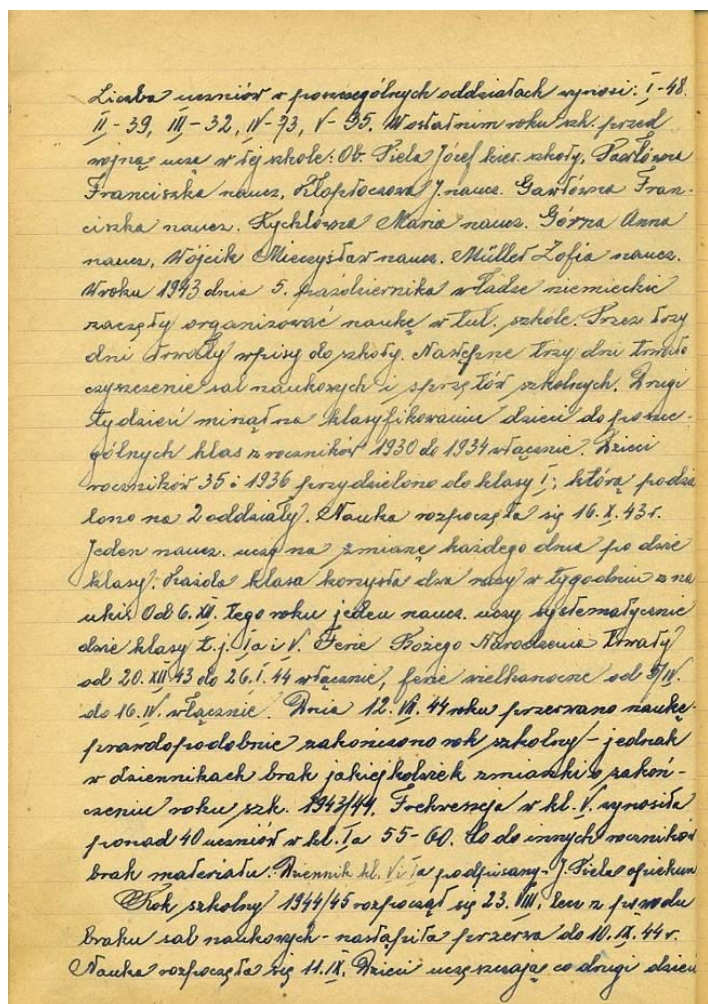 Liczba uczniów w poszczególnych oddziałach wynosi: I - 48.
II - 39, III - 32, IV - 73, V - 35. W ostatnim roku szk. przed
wojną uczą w tej szkole: Ob. Piela Józef kier. szkoły, Pawłówna
Franciszka naucz, Kłoptoczowa J. naucz. Gawłówna Fran-
ciszka naucz. Rychłówna Maria naucz. Górna Anna
naucz, Wójcik Mieczysław naucz. Müller Zofia naucz.
W roku 1943 dnia 5. października władze niemieckie
zaczęły organizować naukę w tut. szkole. Przez trzy
dni trwały wpisy do szkoły. Następne trzy dni trwało
czyszczenie sal naukowych i sprzętów szkolnych. Drugi
tydzień minął na klasyfikowaniu dzieci do poszcze-
gólnych klas z roczników 1930 do 1934 włącznie. Dzieci
roczników 35 i 1936 przydzielono do klasy I; którą podzie
lono na 2 oddziały. Nauka rozpoczęła się 16. X. 43 r.
Jeden naucz. uczy na zmianę każdego dnia po dwie
klasy. Każda klasa korzysta dwa razy w tygodniu z na
uki. Od 6. XII. tego roku jeden naucz. uczy systematycznie
dwie klasy t. j. Ia i V. Ferie Bożego Narodzenia trwały
od 20. XII 43 do 26. I. 44 włącznie, ferie wielkanocne od 5/IV.
do 16. IV. włącznie. Dnia 12. VII. 44 roku przerwano naukę
prawdopodobnie zakończono rok szkolny - jednak
w dziennikach brak jakiejkolwiek zmianki o zakoń-
czeniu roku szk. 1943/44. Frekwencja w kl. V. wynosiła
ponad 40 uczniów w kl. Ia 55 - 60. Co do innych roczników
brak materiału. Dziennik kl. V i Ia podpisany - J. Piela opiekun
Rok szkolny 1944/45 rozpoczął się 23. VIII. lecz z powodu
braku sal naukowych - nastąpiła przerwa do 10. IX. 44 r.
Nauka rozpoczęła się 11. IX. Dzieci uczęszczają co drugi dzień